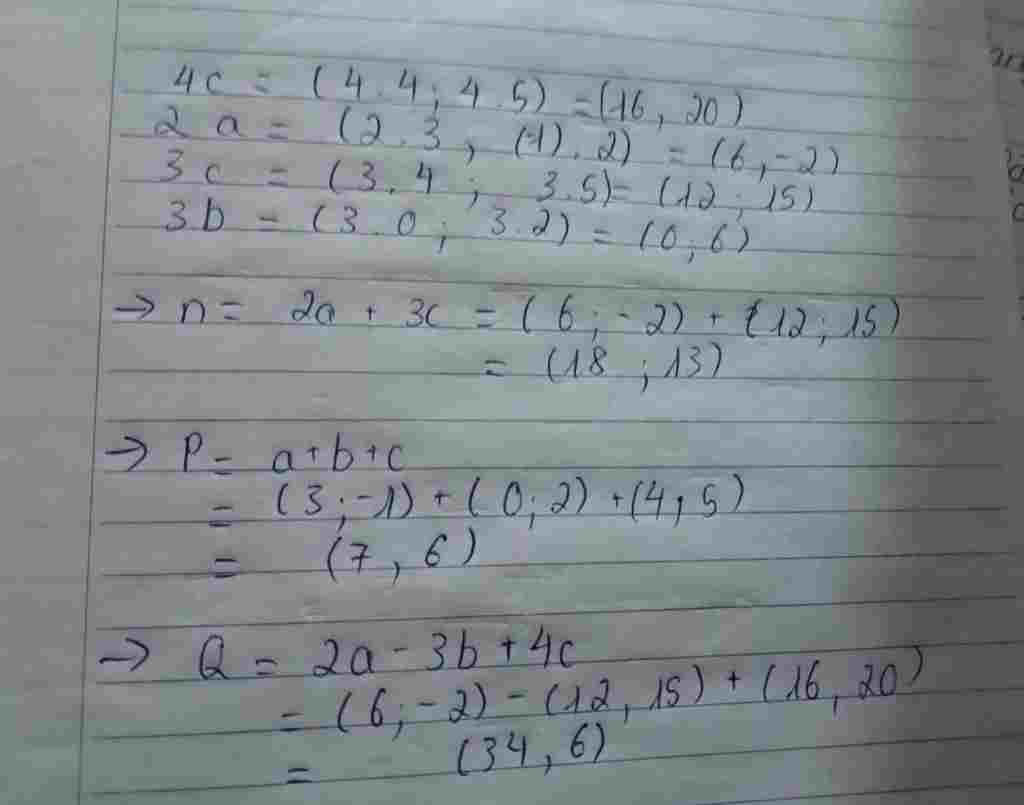 4c = (4.4; 4.5) = (16, 20)
2a = (2.3, (-1).2) = (6,-2)
3c = (3.4; 3.5) = (12; 15)
3b = (3.0; 3.2) = (0;6)
→ n = 2a + 3c = (6;-2) + (12;15)
= (18;13)
→ P = a+b+c
= (3;-1) + (0;2) + (4;5)
= (7, 6)
→ Q = 2a - 3b + 4c
= (6;-2) - (12, 15) + (16, 20)
= (34, 6)